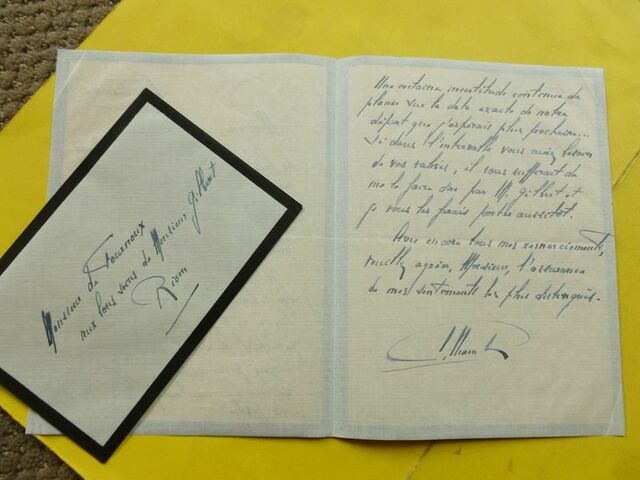 Monsieur de Fournoux
aux bons soins de Monsieur Gilbert
Riom
Une certaine incertitude continue de
planer sur la date exacte de notre
départ que j'espérais plus prochaine...
Si dans l'intervalle vous aviez besoin
de vos valises, il vous suffirait de
me le faire dire par M. Gilbert et
je vous les ferais porter aussitôt.
Avec encore tous mes remerciements,
veuillez agréer, Monsieur, l'assurance
de mes sentiments les plus distingués.